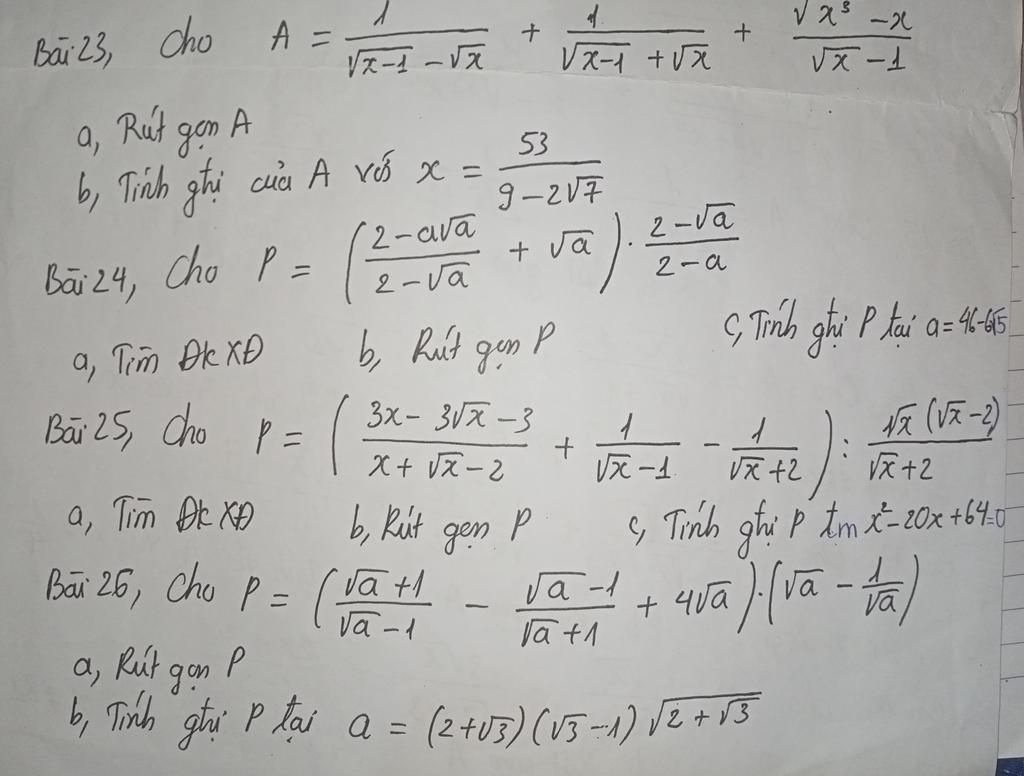 Bài 23, Cho A = 1/(√(x-1) - √x) + 1/(√(x-1) + √x) + (√x³ - x)/(√x - 1)
a, Rút gọn A
b, Tính gtrị của A với x = 53/(9 - 2√7)
Bài 24, Cho P = ((2 - a√a)/(2 - √a) + √a) . (2 - √a)/(2 - a)
a, Tìm ĐkXĐ b, Rút gọn P c, Tính gtrị P tại a = 46-6√5
Bài 25, Cho P = ((3x - 3√x - 3)/(x + √x - 2) + 1/(√x - 1) - 1/(√x + 2)) : (√x(√x - 2))/(√x + 2)
a, Tìm ĐkXĐ b, Rút gọn P c, Tính gtrị P tm x² - 20x + 64 = 0
Bài 26, Cho P = ((√a + 1)/(√a - 1) - (√a - 1)/(√a + 1) + 4√a) . (√a - 1/√a)
a, Rút gọn P
b, Tính gtrị P tại a = (2+√3)(√3 - 1)√(2 + √3)